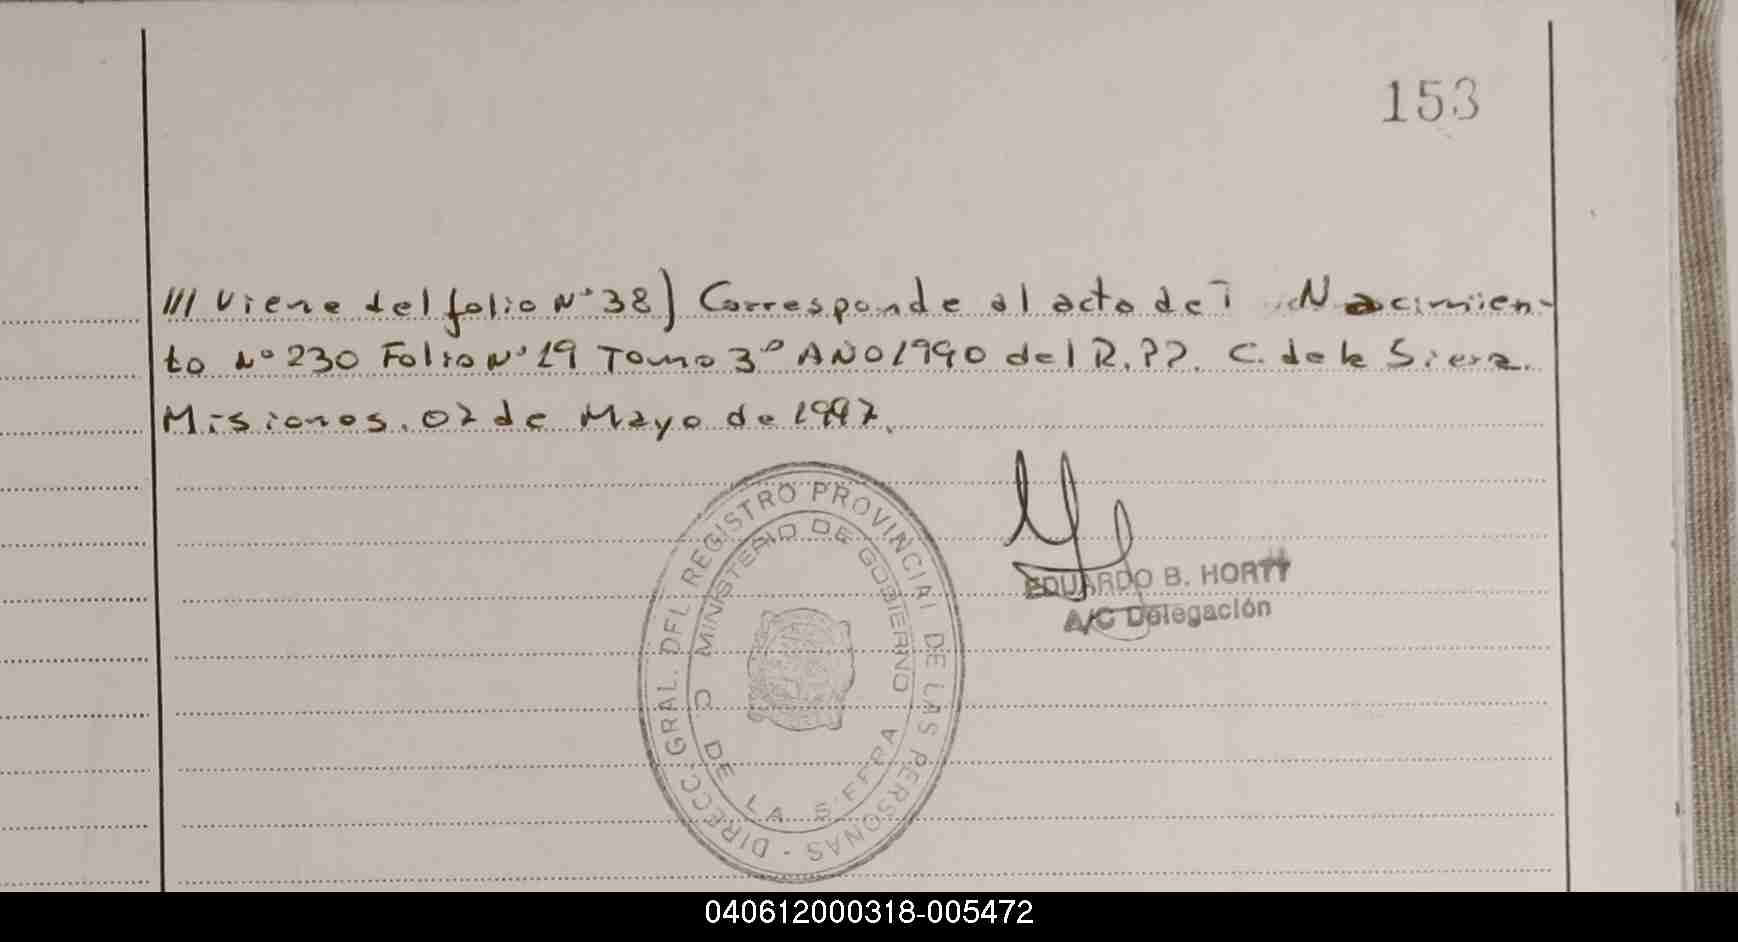 153
/// Viene del folio N° 38) Corresponde al acta de: Nacimien-
to N° 230 Folio N° 19 Tomo 3° AÑO 1990 del R.P.P. C. de la Sierra.
Misiones. 02 de Mayo de 1997.
DIRECC. GRAL. DEL REGISTRO PROVINCIAL DE LAS PERSONAS -
MINISTERIO DE GOBIERNO
C. DE LA SIERRA
EDUARDO B. HORTT
A/C Delegación
040612000318-005472